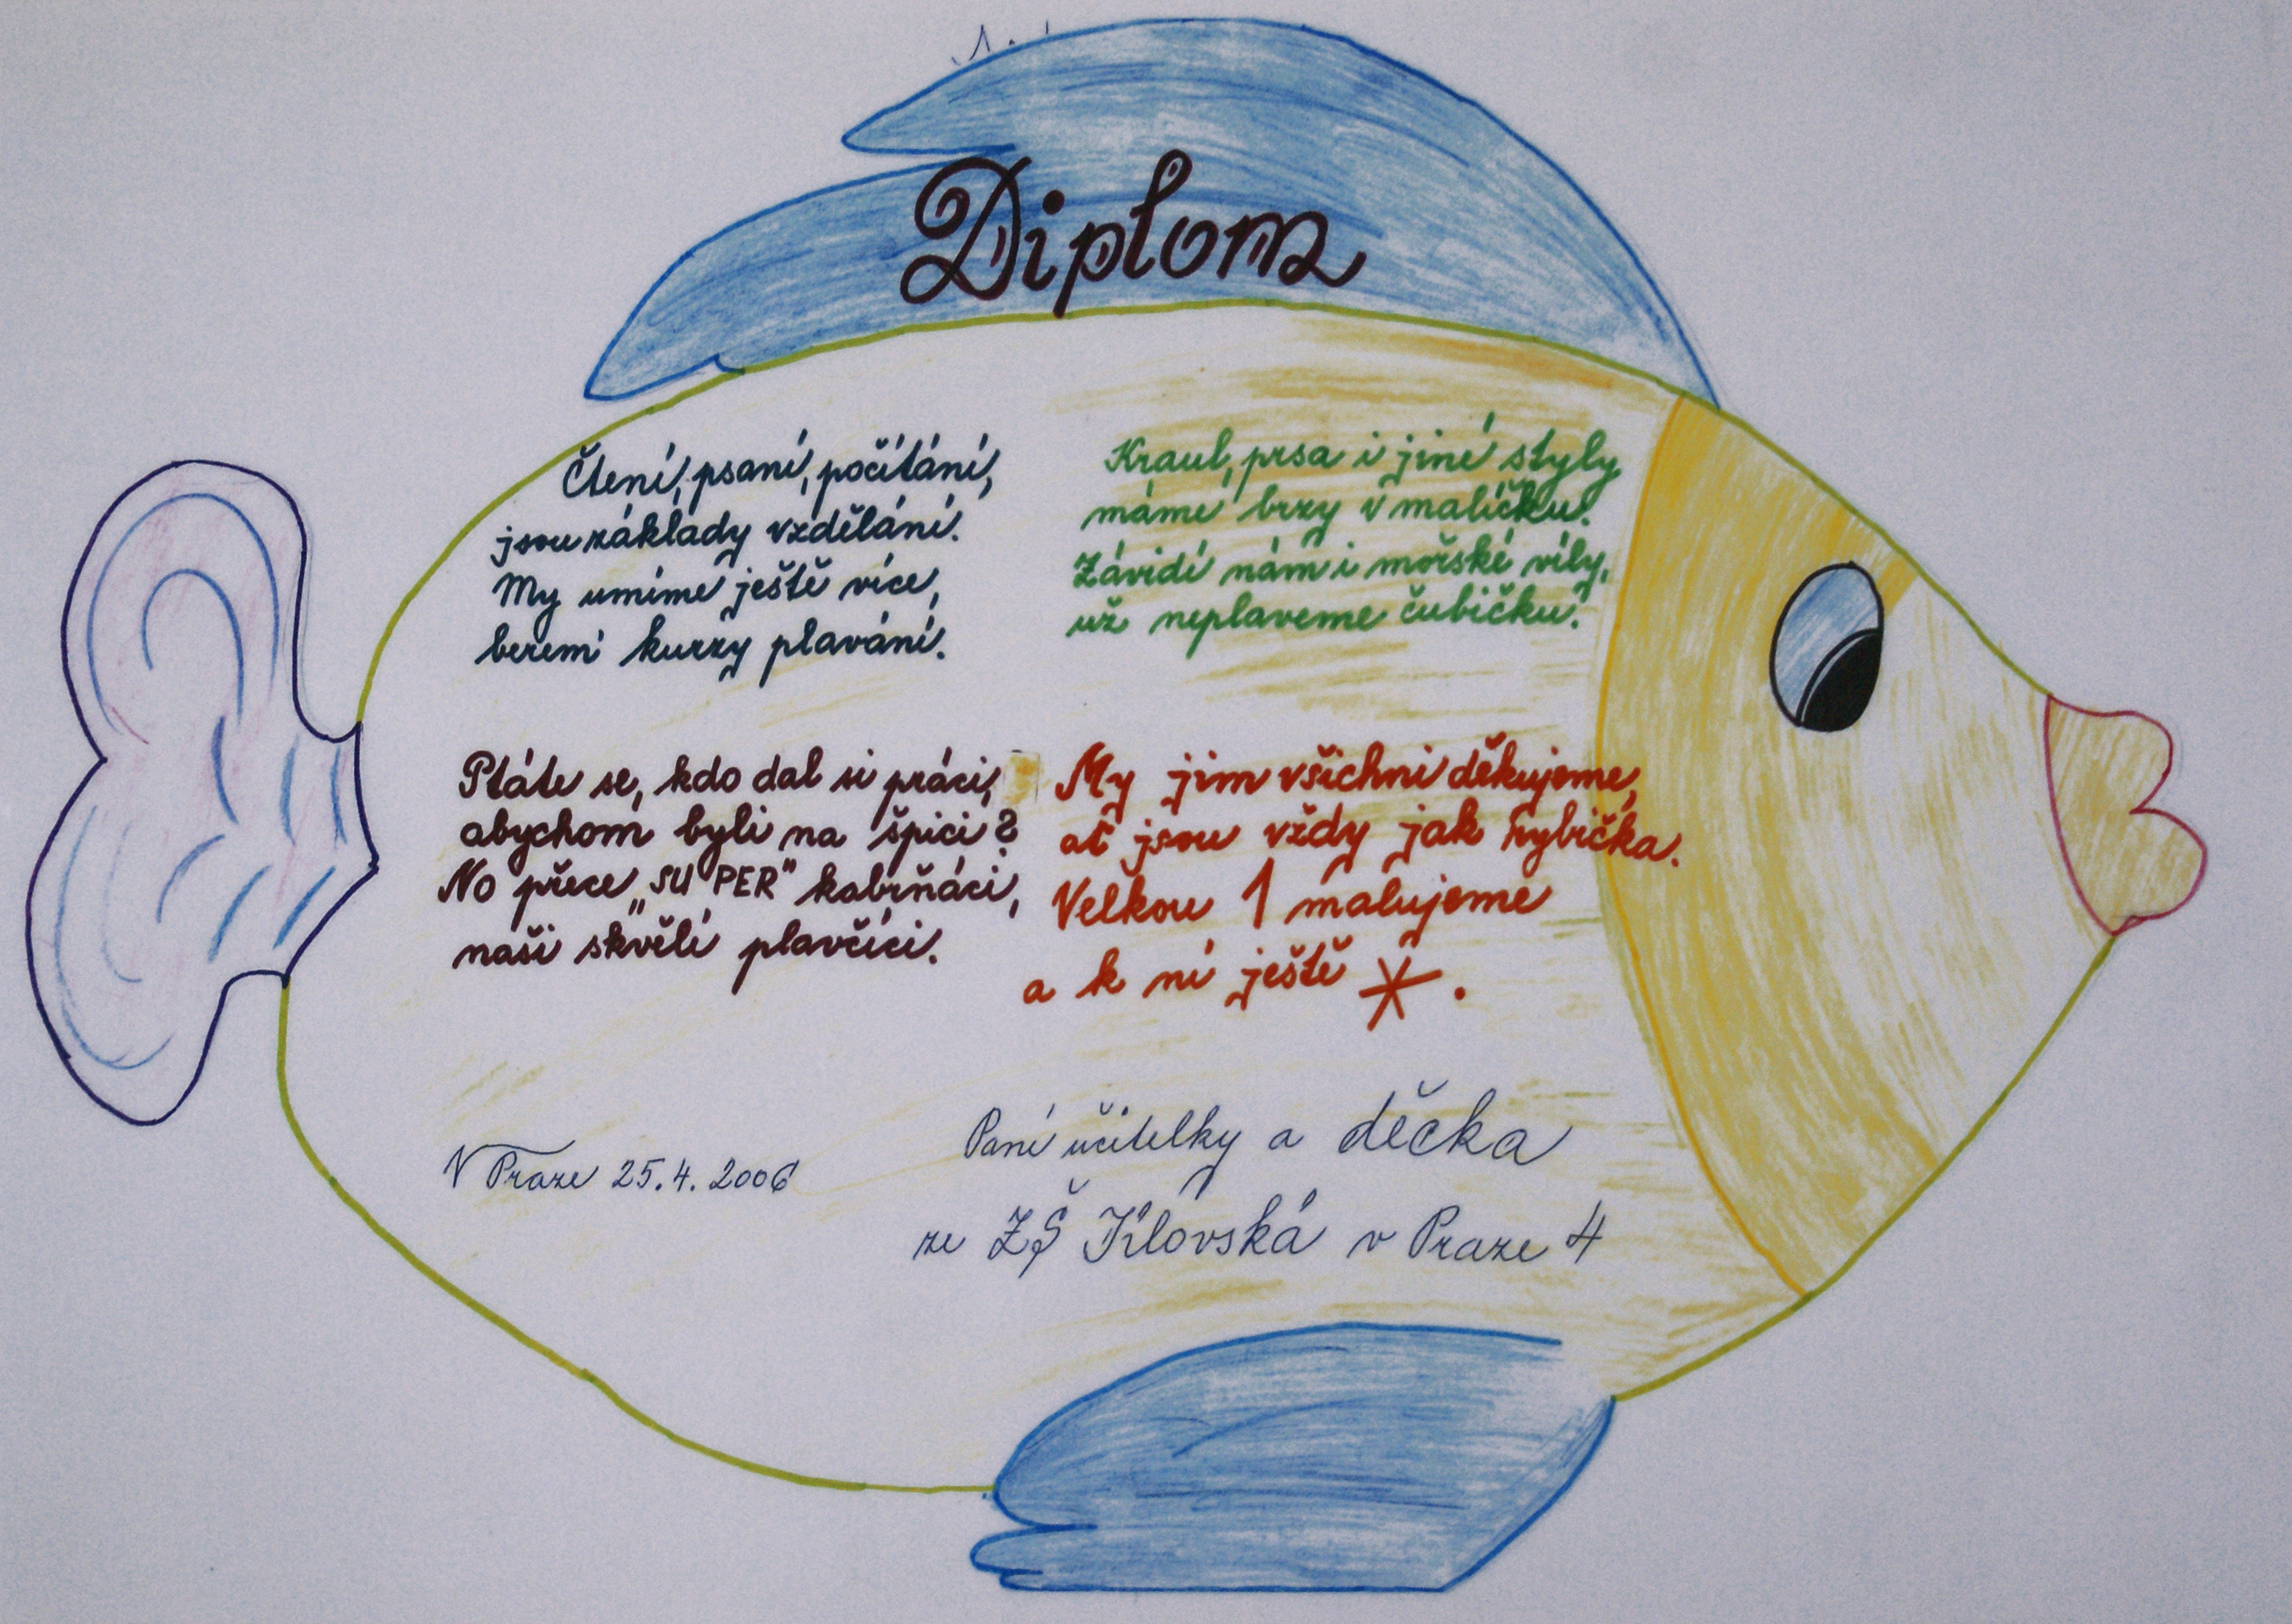 Diplom
Čtení, psaní, počítání,
jsou základy vzdělání.
My umíme ještě více,
beremi kurzy plavání.
Kraul, prsa i jiné styly
máme brzy v malíčku.
Závidí nám i mořské víly,
už neplaveme čubičku.
Ptáte se, kdo dal si práci,
abychom byli na špici?
No přece „SUPER" kabrňáci,
naši skvělí plavčíci.
My jim všichni děkujeme,
ať jsou vždy jak rybička.
Velkou 1 malujeme
a k ní ještě * .
Paní učitelky a děcka
V Praze 25.4.2006
ze ZŠ Jílovská v Praze 4